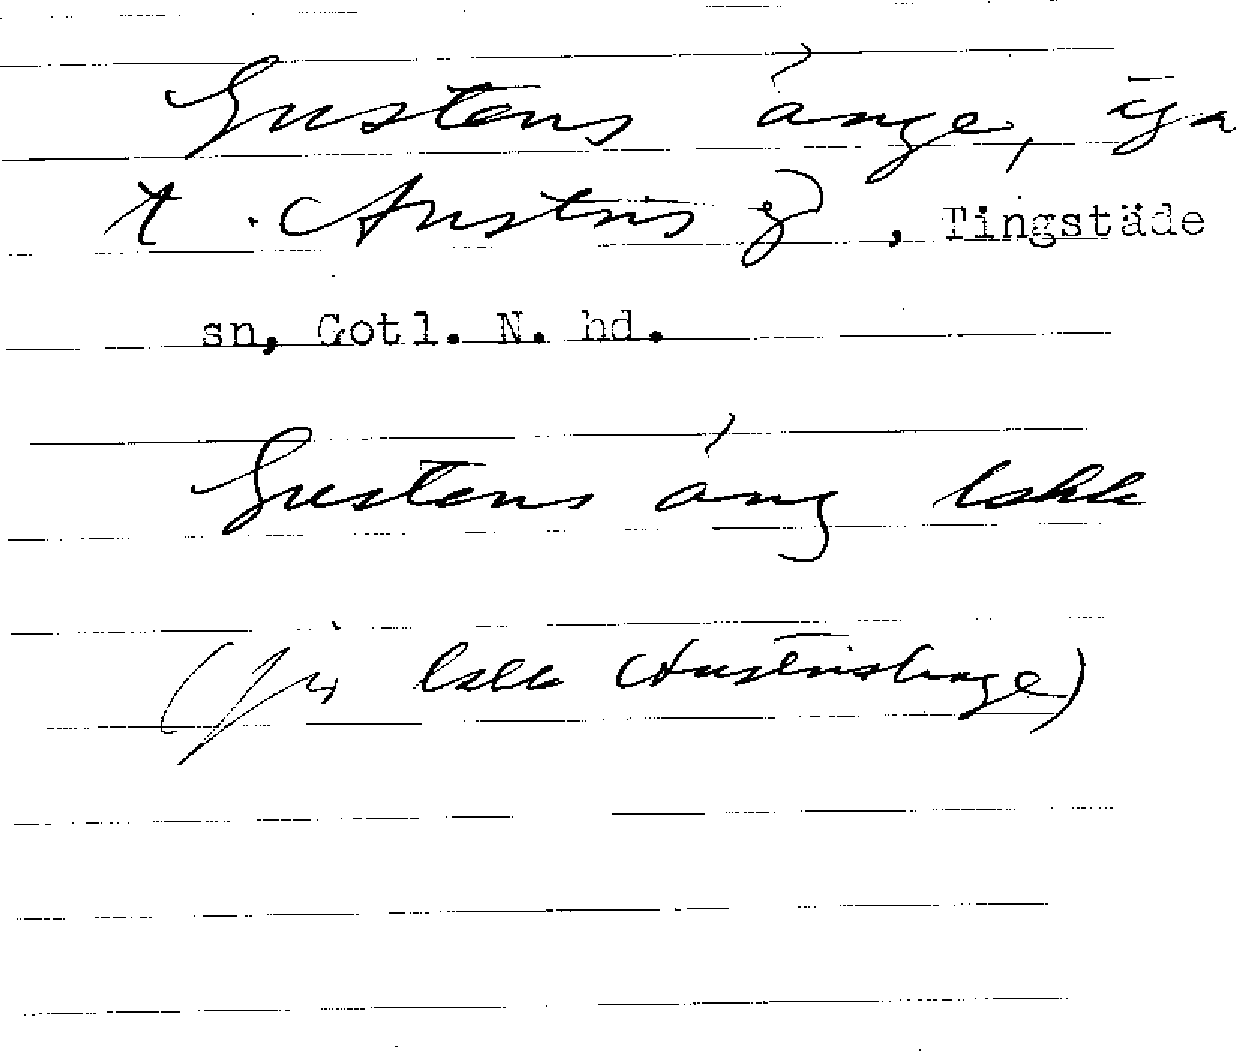 Gustens änge, äga
t. Austris g, Tingstäde
sn, Gotl. N. hd.
Gustens äng lskk
(jfr lskk Austrishage)